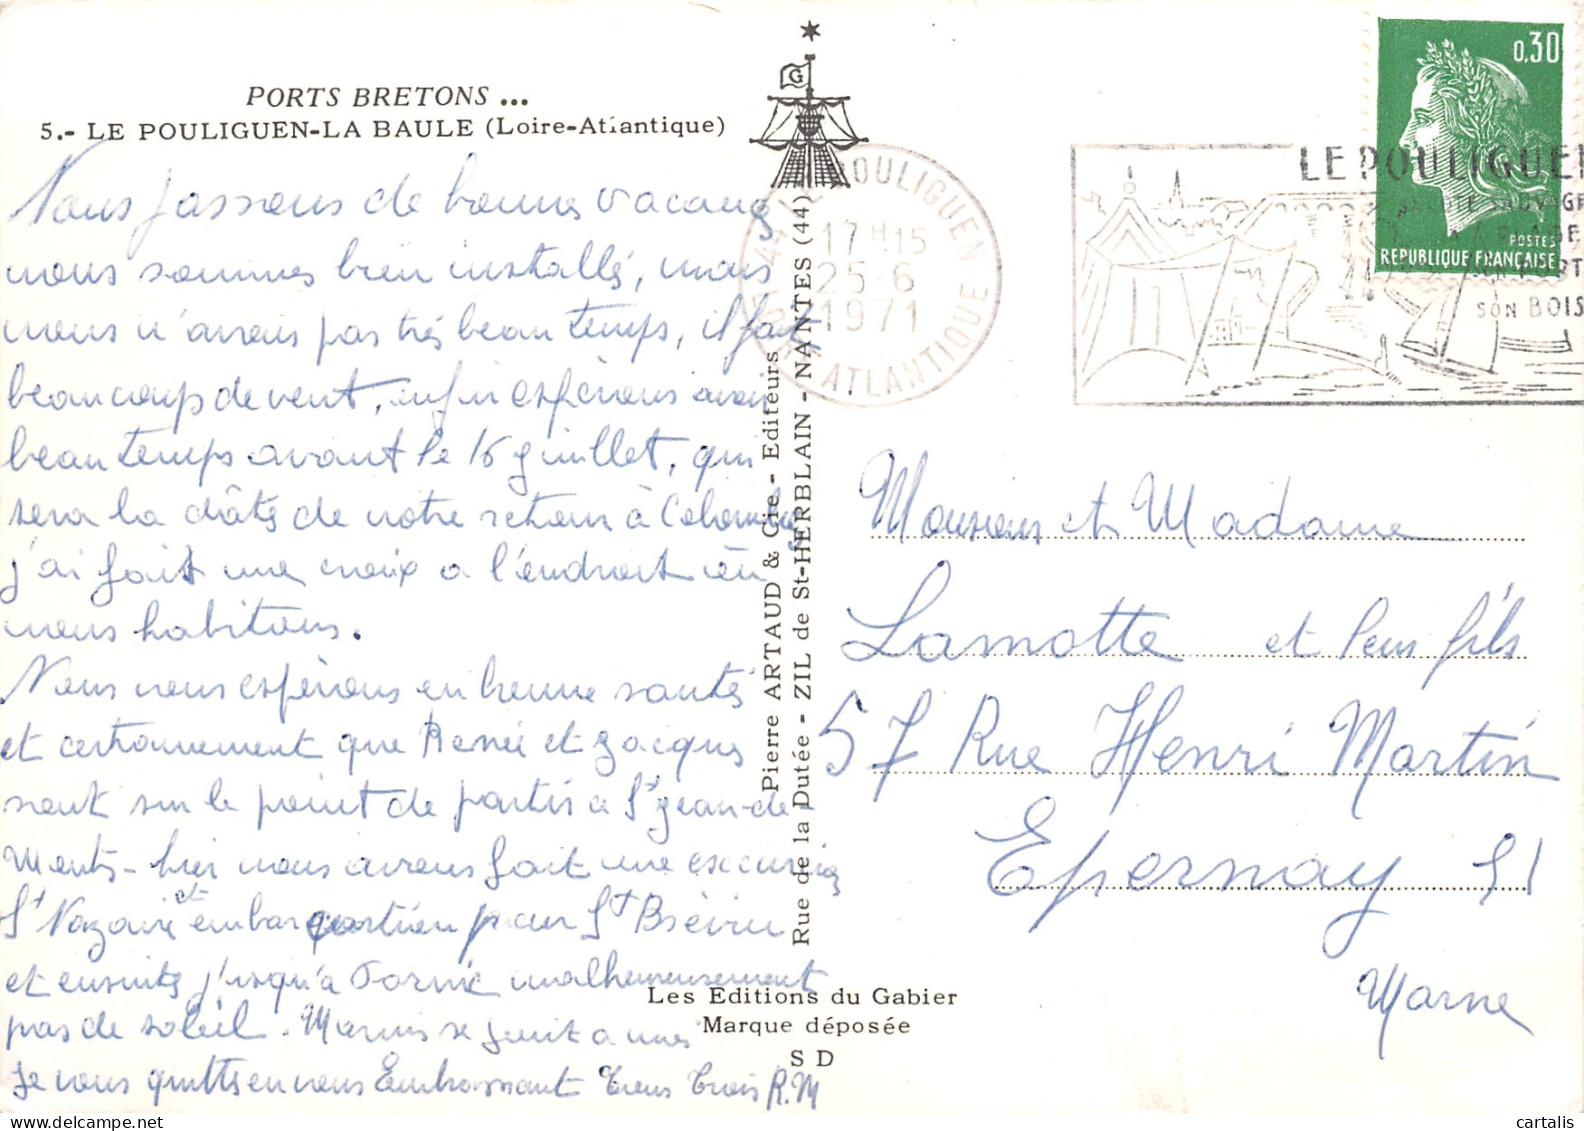 PORTS BRETONS ...
5.- LE POULIGUEN-LA BAULE (Loire-Atlantique)
Nous passons de bonnes vacances
nous sommes bien installés, mais
nous n'avons pas très beau temps, il fait
beaucoup de vent, enfin espérons avoir
beau temps avant le 16 juillet, qui
sera la date de notre retour à Colombes
j'ai fait une croix a l'endroit où
nous habitons.
Nous vous espérons en bonne santé
et certainement que Renée et Jacques
sont sur le point de partir a St Jean-de-
Monts - hier nous avons fait une excursion
St Nazaire et embarquation pour St Brévin
et ensuite j'usqu'a Pornic malheureusement
pas de soleil. Mamie se joint a nous
Je vous quitte en vous Embrassant Tous Trois R.M
G
Pierre ARTAUD & Cie - Editeurs
Rue de la Dutée - ZIL de St-HERBLAIN - NANTES (44)
Les Editions du Gabier
Marque déposée
S D
44 LE POULIGUEN
17 H 15
25-6
1971
LOIRE ATLANTIQUE
LE POULIGUEN
SA CÔTE SAUVAGE
SA PLAGE
SON PORT
SON BOIS
0,30
POSTES
REPUBLIQUE FRANÇAISE
Monsieur et Madame
Lamotte et leur fils
57 Rue Henri Martin
Epernay 51
Marne
cartalis